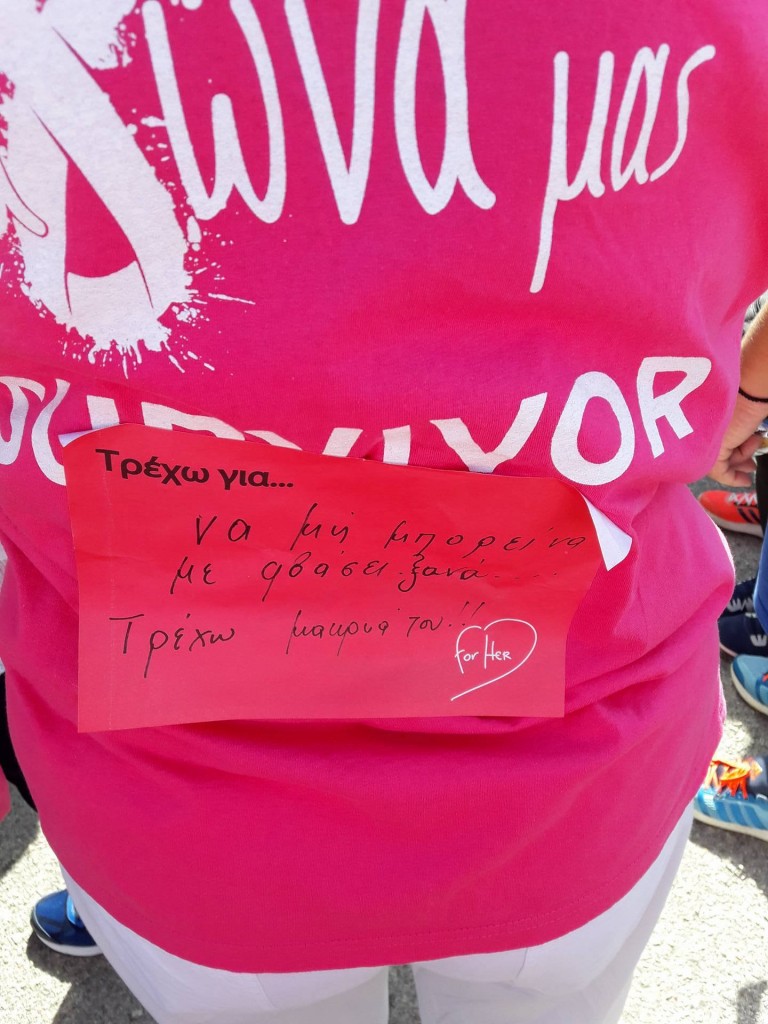 μας
SURVIVOR
Τρέχω για...
να μη μπορεί να
με φθάσει ξανά....
Τρέχω μακρυά του!!
for HER